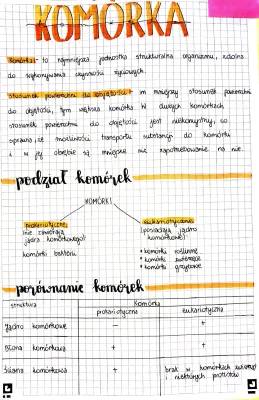 KOMÓRKA
Komórka - to najmniejsza jednostka strukturalna organizmu, zdolna
do wykonywania czynności życiowych.
Stosunek powierzchni do objętości: im mniejszy stosunek powierzchni
do objętości, tym większa komórka. W dużych komórkach
stosunek powierzchni do objętości jest niekorzystny, co
sprawia, że możliwości transportu substancji do komórki
i w jej obrębie są mniejsze niż zapotrzebowanie na nie.
podział komórek
KOMÓRKI
prokariotyczne
(nie zawierają
jądra komórkowego)
komórki bakterii
eukariotyczne
(posiadają jądro
komórkowe)
• komórki roślinne
• komórki zwierzęce
• komórki grzybowe
porównanie komórek
struktura
Komórka
prokariotyczna
eukariotyczna
Jądro komórkowe - +
Błona komórkowa + +
Ściana komórkowa + brak w komórkach zwierząt
i niektórych protistów